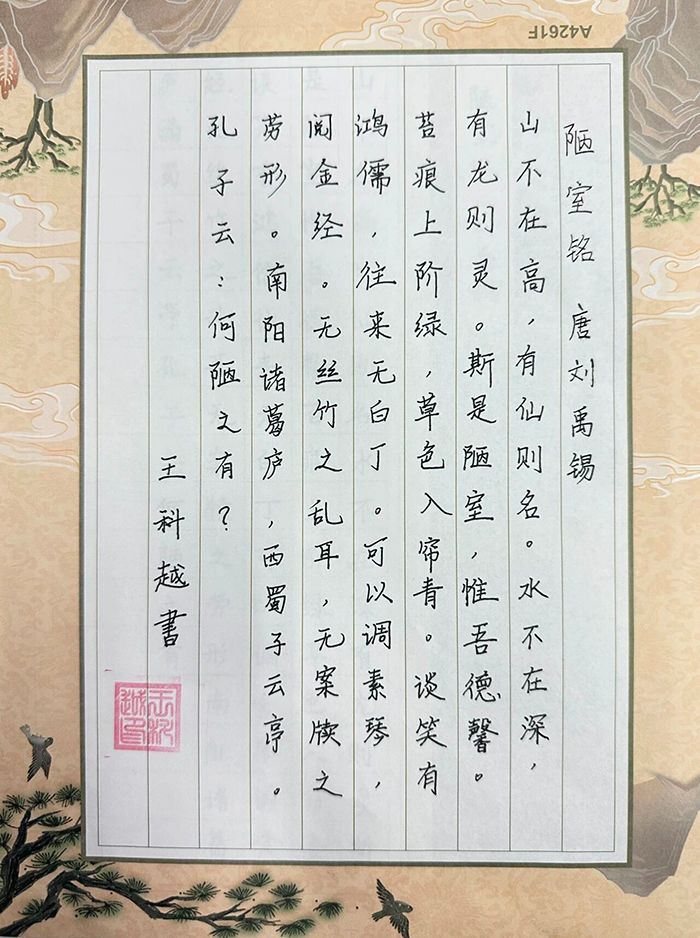 陋室铭 唐刘禹锡
山不在高，有仙则名。水不在深，
有龙则灵。斯是陋室，惟吾德馨。
苔痕上阶绿，草色入帘青。谈笑有
鸿儒，往来无白丁。可以调素琴，
阅金经。无丝竹之乱耳，无案牍之
劳形。南阳诸葛庐，西蜀子云亭。
孔子云：何陋之有？
王科越书
王科越印
A4261F